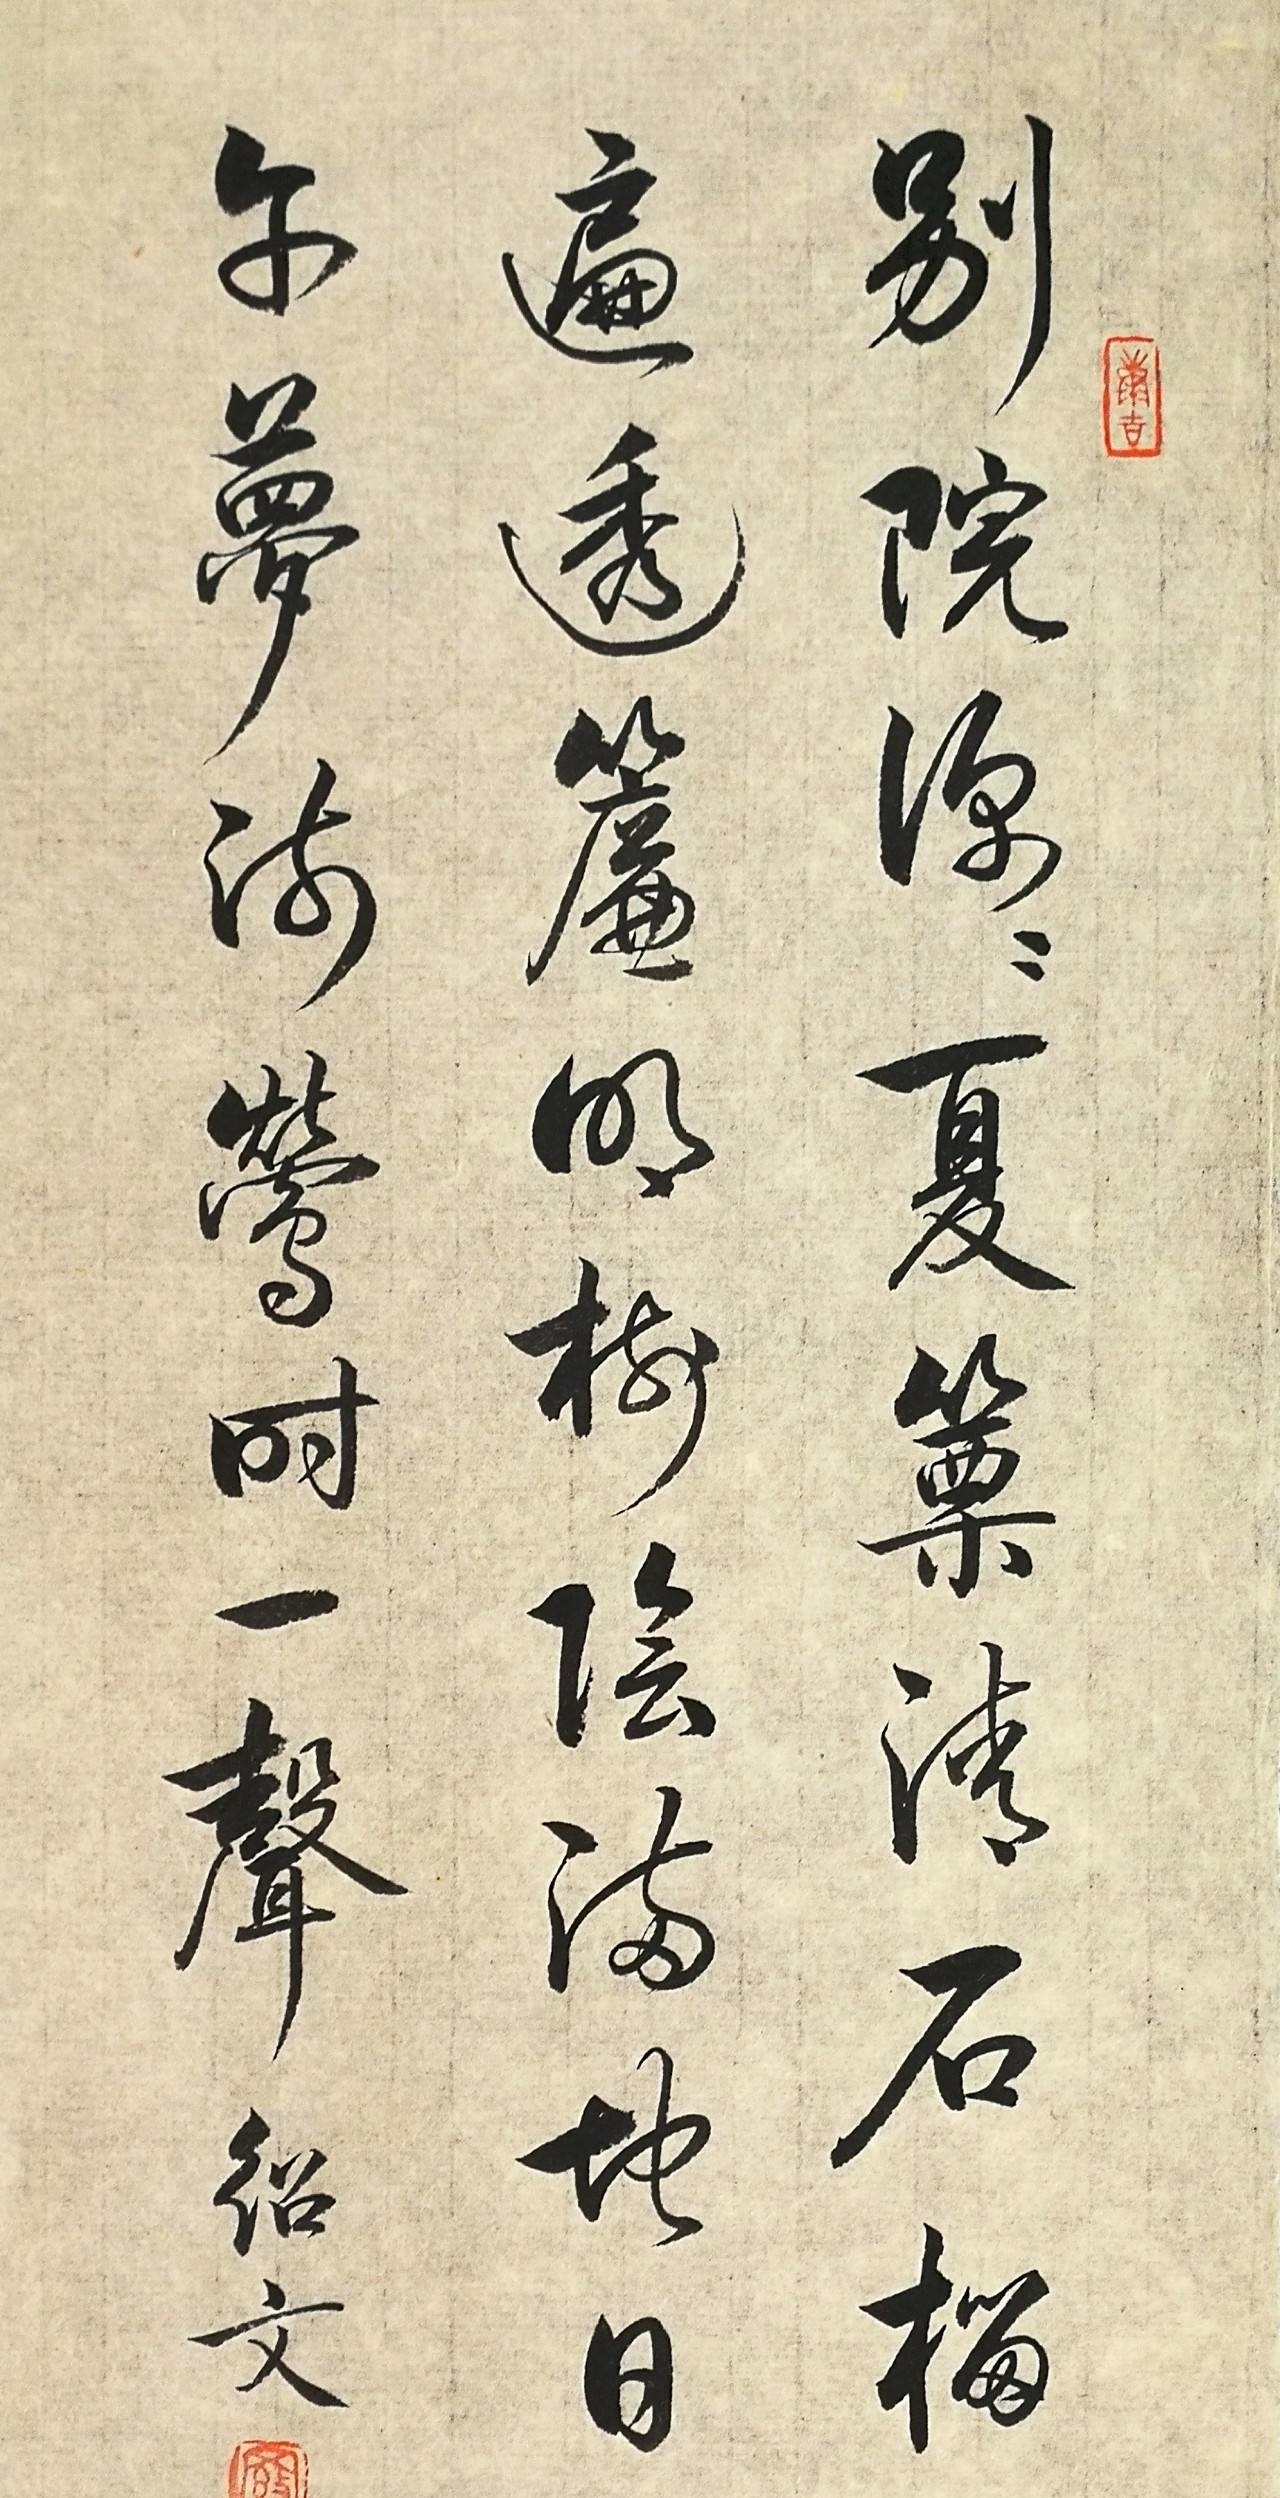 別院深〻夏簟清石榴
遍透簾明樹陰滿地日
午夢流鶯時一聲
紹文